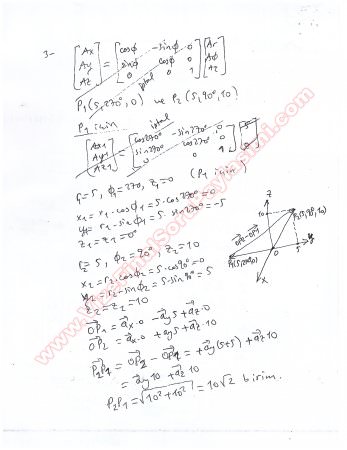 3- [Ax Ay Az] = [cosϕ -sinϕ 0 sinϕ cosϕ 0 0 0 1] [Ar Aϕ Az]
iptal
P1(5,270°,0) ve P2(5,90°,10)
P1 için
iptal
[Ax1 Ay1 Az1] = [cos270° -sin270° 0 sin270° cos270° 0 0 0 1]
r1=5, ϕ1=270, z1=0 (P1 için)
x1=r1·cosϕ1=5·cos270°=0
y1=r1·sinϕ1=5·sin270°=-5
z1=z1=0
r2=5, ϕ2=90°, z2=10
x2=r2·cosϕ2=5·cos90°=0
y2=r2·sinϕ2=5·sin90°=5
z2=z2=10
OP1=ax·0 -ay5+az·0
OP2=ax·0+ay5+az·10
P2P1=OP2-OP1=+ay(5+5)+az10
=ay10+az10
P2P1=√10²+10²=10√2 birim.
z
10
P2(5,90,10)
OP2-OP1
P1(5,270,0)
0
5
y
x